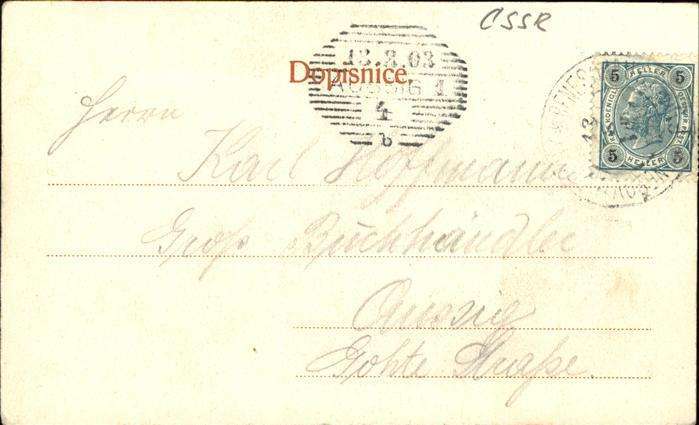 CSSR
Dopisnice
13.8.03
AUSSIG 1
4
b
5 HELLER 5
5 HELLER 5
Herrn
Karl Hoffmann
Groß Buchhändler
Aussig
Göhte Straße.